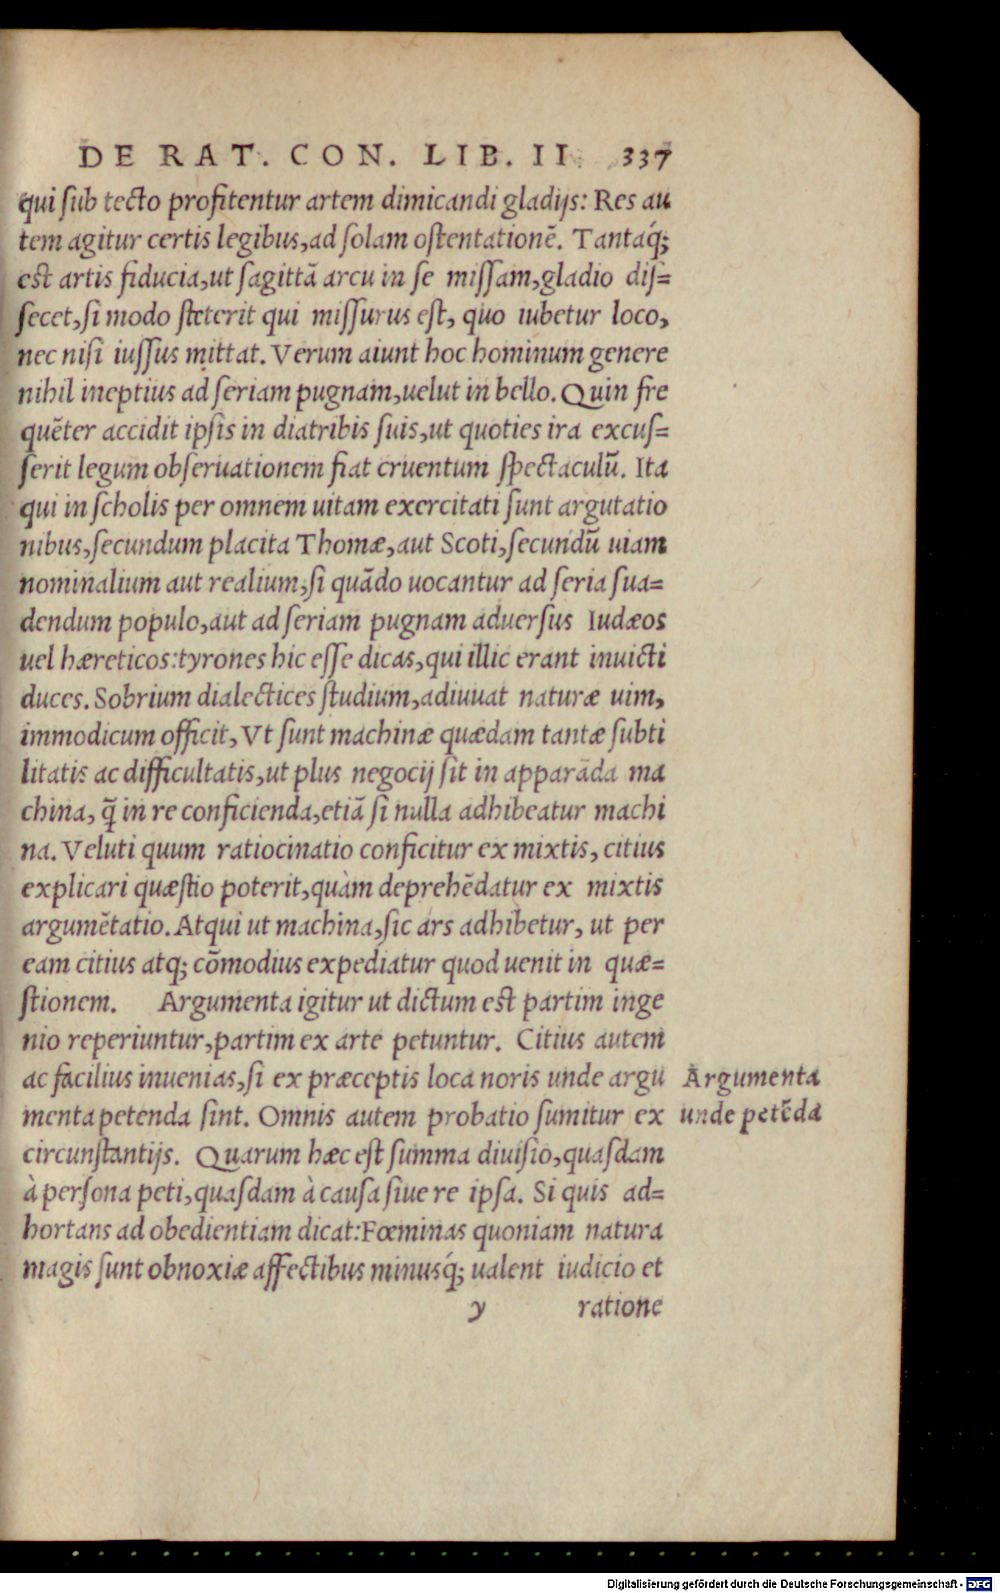 DE RAT. CON. LIB. II. 337
qui ſub tecto profitentur artem dimicandi gladijs: Res au
tem agitur certis legibus,ad ſolam oſtentationẽ. Tantaq́;
est artis fiducia,ut ſagittã arcu in ſe miſſam,gladio diſ=
ſecet,ſi modo ſteterit qui miſſurus eſt, quo iubetur loco,
nec niſi iuſſus mittat. Verum aiunt hoc hominum genere
nihil ineptius ad ſeriam pugnam,uelut in bello. Quin fre
quẽter accidit ipſis in diatribis ſuis,ut quoties ira excuſ=
ſerit legum obſeruationem fiat cruentum ſpectaculũ. Ita
qui in ſcholis per omnem uitam exercitati ſunt argutatio
nibus,ſecundum placita Thomæ,aut Scoti,ſecundũ uiam
nominalium aut realium,ſi quãdo uocantur ad ſeria ſua=
dendum populo,aut ad ſeriam pugnam aduerſus Iudæos
uel hæreticos:tyrones hic eſſe dicas,qui illic erant inuicti
duces. Sobrium dialectices ſtudium,adiuuat naturæ uim,
immodicum officit, Vt ſunt machinæ quædam tantæ ſubti
litatis ac difficultatis,ut plus negocij ſit in apparãda ma
china, q̃ in re conficienda,etiã ſi nulla adhibeatur machi
na. Veluti quum ratiocinatio conficitur ex mixtis, citius
explicari quæſtio poterit,quàm deprehẽdatur ex mixtis
argumẽtatio. Atqui ut machina,ſic ars adhibetur, ut per
eam citius atq; cõmodius expediatur quod uenit in quæ=
ſtionem. Argumenta igitur ut dictum est partim inge
nio reperiuntur,partim ex arte petuntur. Citius autem
ac facilius inuenias,ſi ex præceptis loca noris unde argu
menta petenda ſint. Omnis autem probatio ſumitur ex
circunſtantijs. Quarum hæc eſt ſumma diuiſio,quaſdam
à perſona peti,quaſdam à cauſa ſiue re ipſa. Si quis ad=
hortans ad obedientiam dicat:Fœminas quoniam natura
magis ſunt obnoxiæ affectibus minusq́; ualent iudicio et
y ratione
Argumenta
unde petẽda
Digitalisierung gefördert durch die Deutsche Forschungsgemeinschaft - DFG